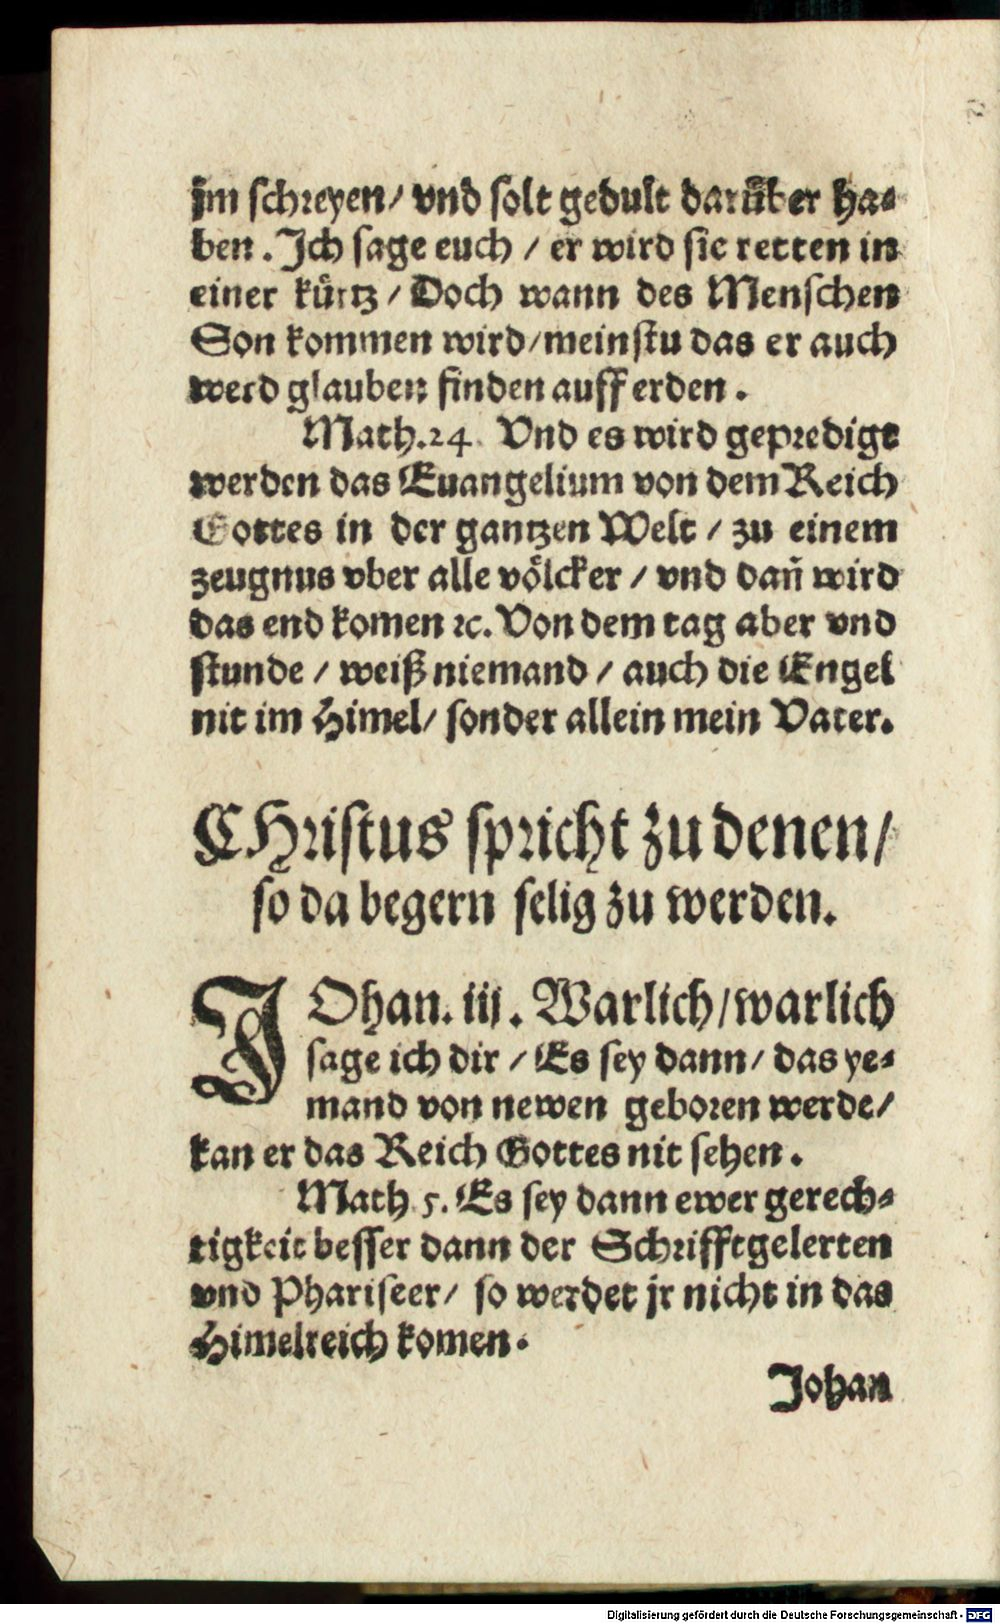 jm schreyen/ vnd solt gedult darüber ha⸗
ben. Jch sage euch / er wird sie retten in
einer kürtz / Doch wann des Menschen
Son kommen wird/meinstu das er auch
werd glauben finden auff erden.
Math.24. Vnd es wird gepredigt
werden das Euangelium von dem Reich
Gottes in der gantzen Welt / zu einem
zeugnus vber alle völcker / vnd dañ wird
das end komen ꝛc. Von dem tag aber vnd
stunde / weiß niemand / auch die Engel
nit im Himel/ sonder allein mein Vater.
CHristus spricht zu denen/
so da begern selig zu werden.
JOhan. iij. Warlich/warlich
sage ich dir / Es sey dann/ das ye⸗
mand von newen geboren werde/
kan er das Reich Gottes nit sehen.
Math 5. Es sey dann ewer gerech⸗
tigkeit besser dann der Schrifftgelerten
vnd Phariseer/ so werdet jr nicht in das
Himelreich komen.
Johan
Digitalisierung gefördert durch die Deutsche Forschungsgemeinschaft - DFG